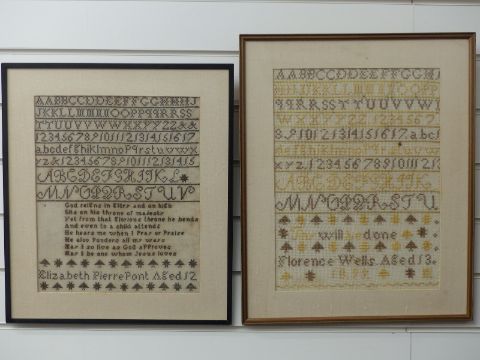 AABBCCDDEEFFGGHHIJ
JKKLL
TTUUVVWWXXYYZZ&&
1234567891011121314151617
abcdefghiklmnoPqrstuvwx
yz&123456789101112131415
ABCDEFGHIKL
MNOPQRSTUV
God reigns in Glory and on high
Sits on his throne of majesty
Yet from that Glorious throne he bends
And even to a child attends
He hears me when I Pray or Praise
He also Ponders all my ways
May I so live as God approves
May I be one whom Jesus loves
Elizabeth PierrePont Aged 12
AABBCCDDEEFFGGH
OOPP
qqRRSSTTUUVVW
8.91011121314151617.abcd
fghiklmnoPqrstuvw
xyz.12345678910111213
ABCDEFGHIKL
MNOPQRSTUV
will be done
Florence Wells. Aged 13.